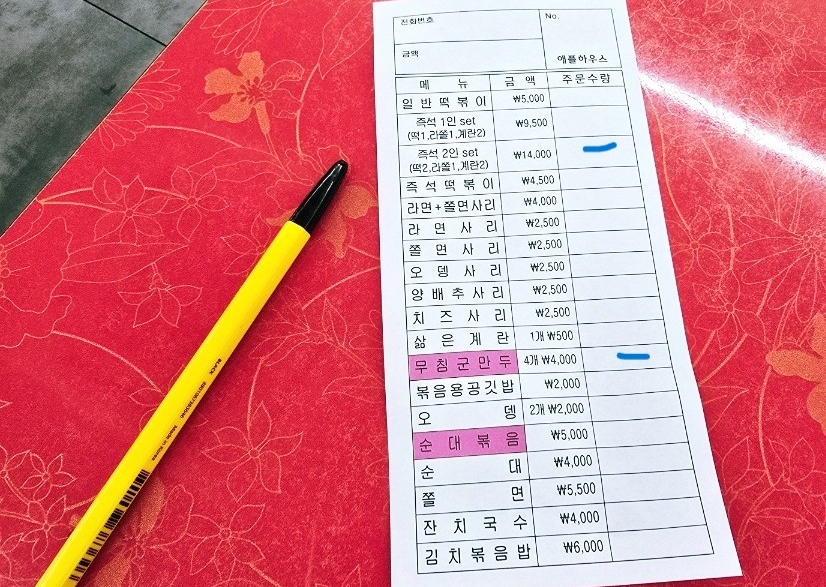 전화번호
No.
금액
애플하우스
메 뉴 금 액 주문수량
일 반 떡 볶 이 ₩5,000
즉석 1인 set ₩9,500
(떡1,라쫄1,계란2)
즉석 2인 set ₩14,000
(떡2,라쫄1,계란2)
즉 석 떡 볶 이 ₩4,500
라면+쫄면사리 ₩4,000
라 면 사 리 ₩2,500
쫄 면 사 리 ₩2,500
오 뎅 사 리 ₩2,500
양 배 추 사 리 ₩2,500
치 즈 사 리 ₩2,500
삶 은 계 란 1개 ₩500
무 침 군 만 두 4개 ₩4,000
볶음용공깃밥 ₩2,000
오 뎅 2개 ₩2,000
순 대 볶 음 ₩5,000
순 대 ₩4,000
쫄 면 ₩5,500
잔 치 국 수 ₩4,000
김 치 볶 음 밥 ₩6,000
BLACK
Made in Korea